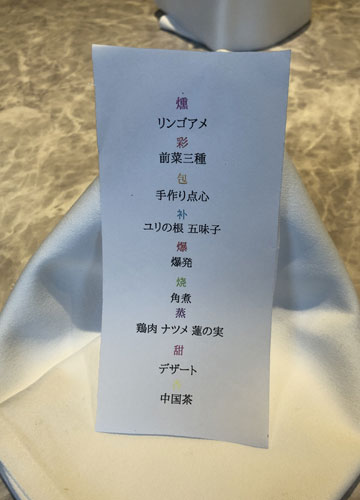 燻
リンゴアメ
彩
前菜三種
包
手作り点心
补
ユリの根 五味子
爆
爆発
烧
角煮
蒸
鶏肉 ナツメ 蓮の実
甜
デザート
中国茶